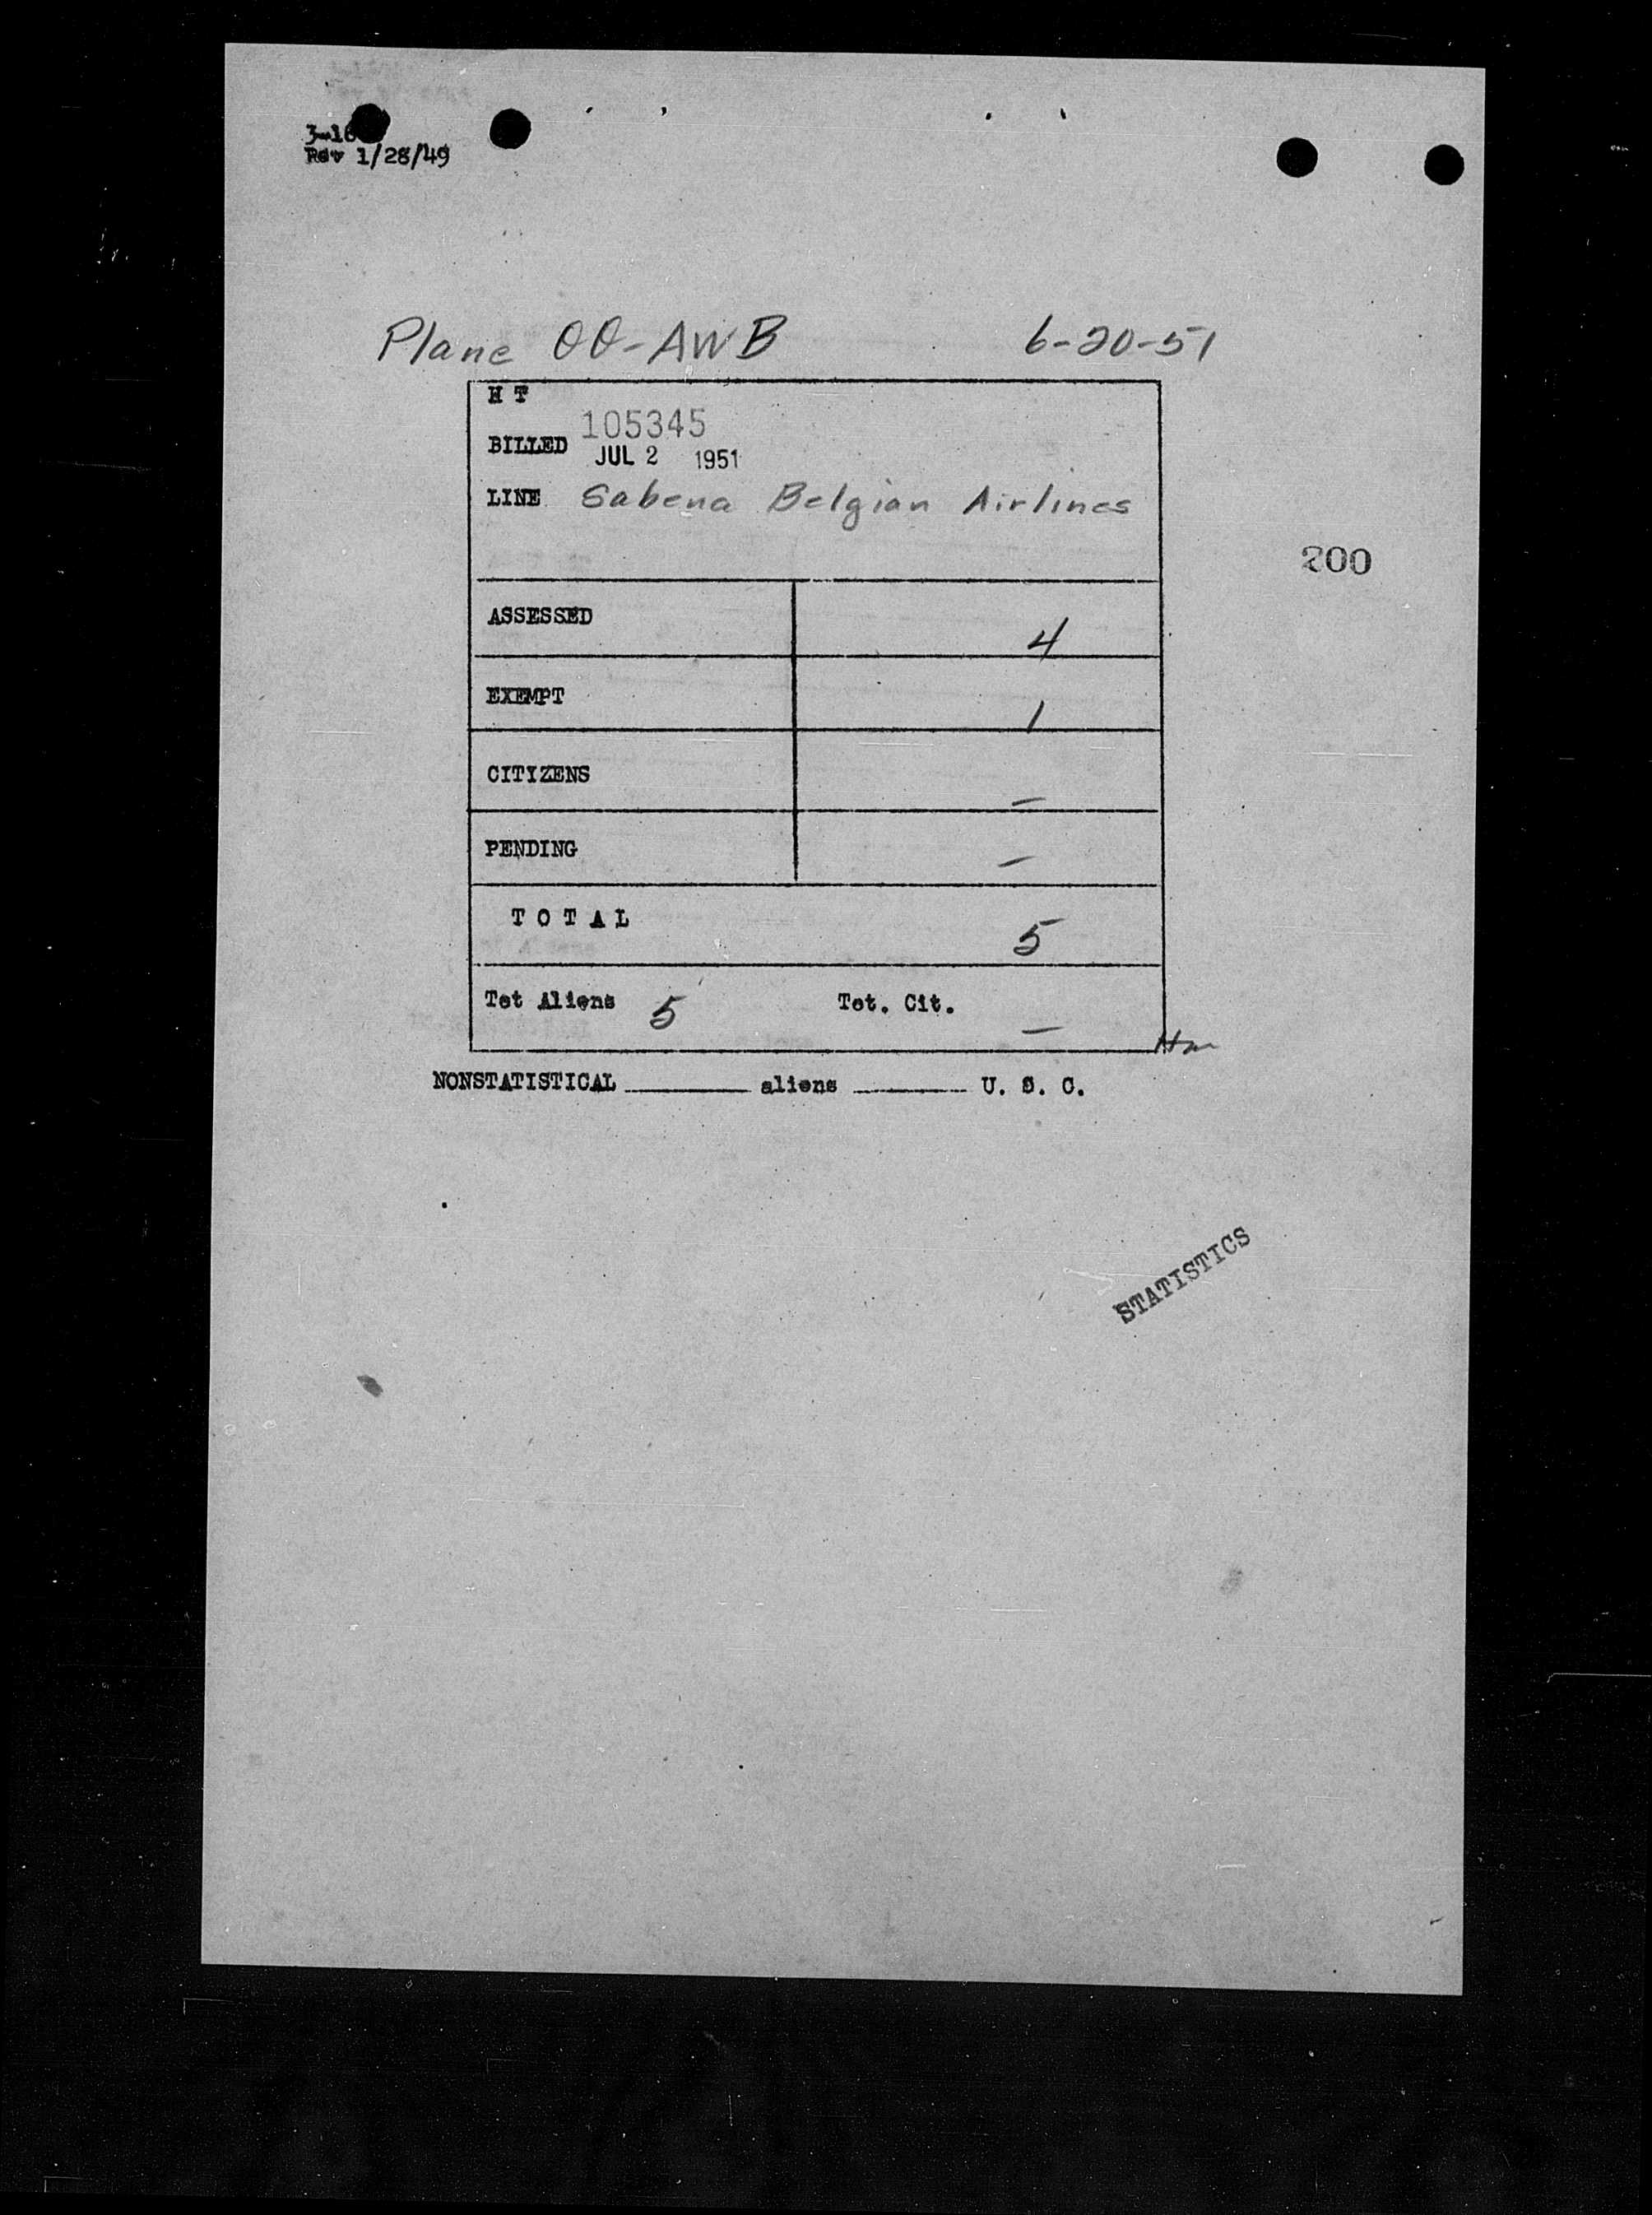 Rev 1/28/49
Plane OO-AWB 6-20-51
H T
105345
BILLED JUL 2 1951
LINE Sabena Belgian Airlines
200
ASSESSED 4
EXEMPT 1
CITIZENS –
PENDING –
T O T A L 5
Tot Aliens 5 Tot. Cit. –
NONSTATISTICAL ____ aliens ____ U. S. C.
STATISTICS